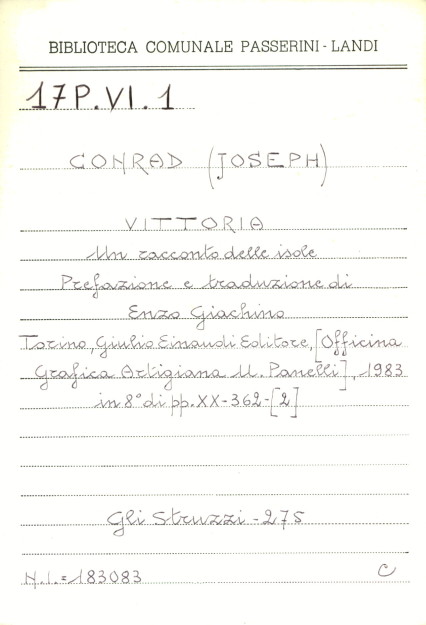 BIBLIOTECA COMUNALE PASSERINI-LANDI
17P.VI.1
CONRAD (JOSEPH)
VITTORIA
Un racconto delle isole
Prefazione e traduzione di
Enzo Giachino
Torino, Giulio Einaudi Editore, [Officina
Grafica Artigiana U. Panelli], 1983
in 8° di pp. XX-362-[2]
Gli Struzzi - 275
N.I.=183083
C